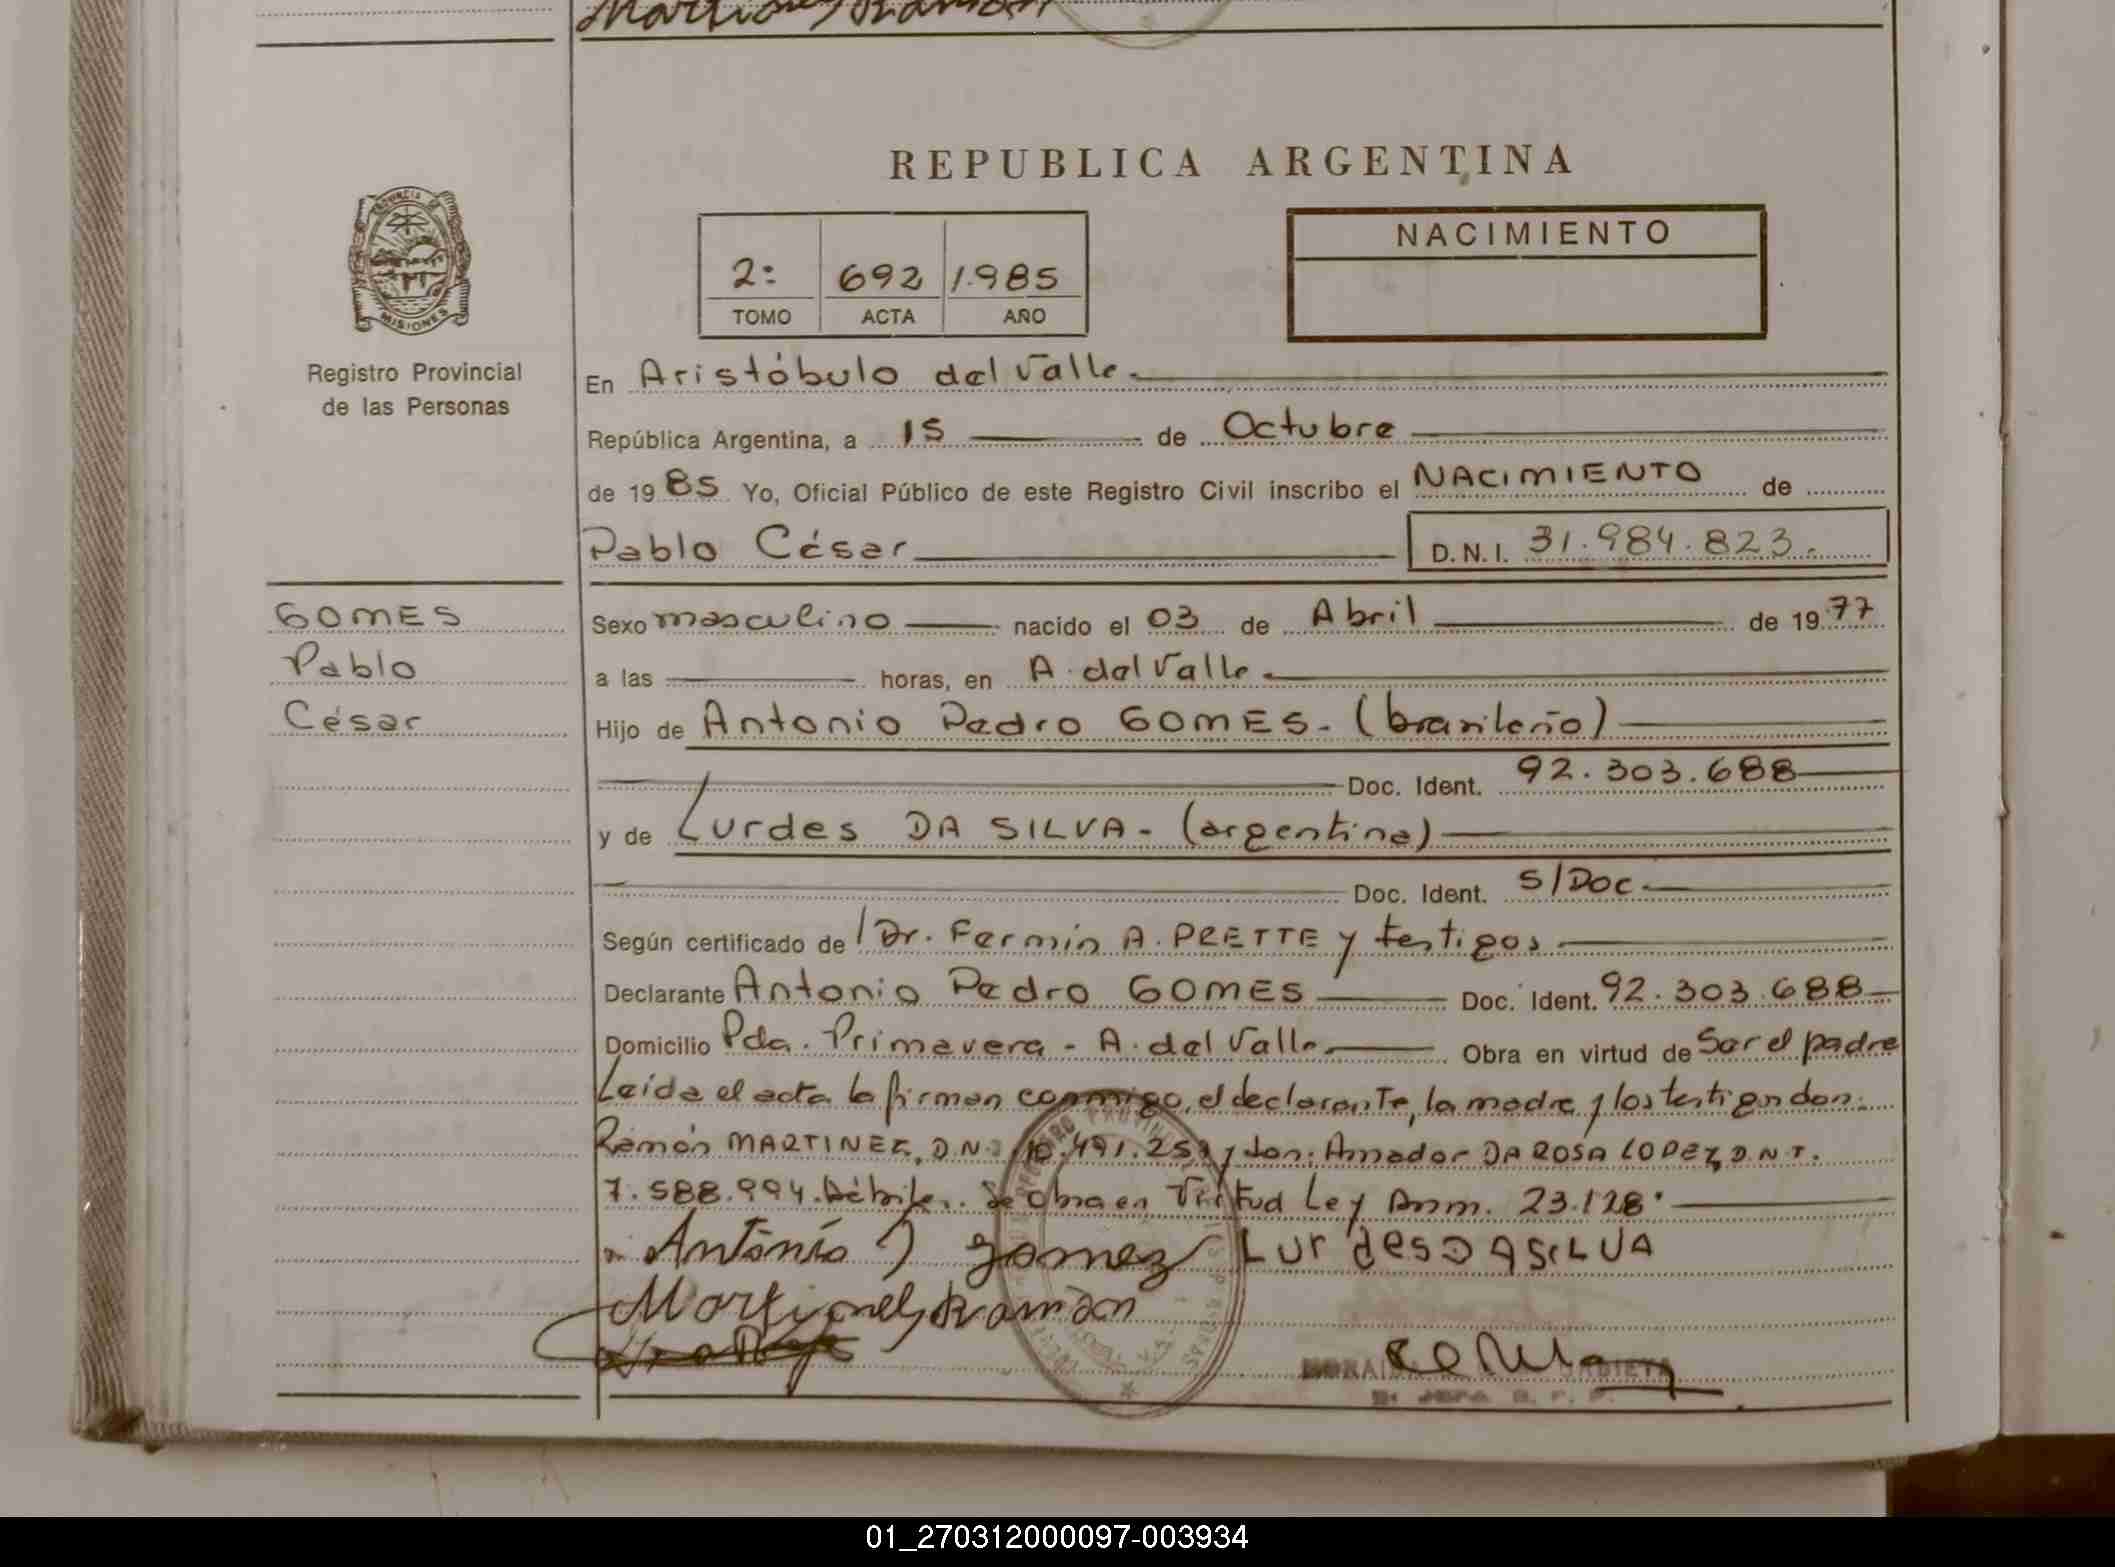 Martinez Ramon
REPUBLICA ARGENTINA
PROVINCIA DE
MISIONES
Registro Provincial
de las Personas
NACIMIENTO
2: 692 1.985
TOMO ACTA AÑO
En Aristóbulo del Valle.
República Argentina, a 15 de Octubre
de 1985 Yo, Oficial Público de este Registro Civil inscribo el NACIMIENTO de
Pablo César D.N.I. 31.984.823.-
GOMES
Pablo
César
Sexo masculino nacido el 03 de Abril de 1977
a las horas, en A. del Valle
Hijo de Antonio Pedro GOMES.- (brasileño)
Doc. Ident. 92.303.688
y de Lurdes DA SILVA.- (argentina)
Doc. Ident. S/Doc.
Según certificado de Dr. Fermín A. PRETTE y testigos
Declarante Antonio Pedro GOMES Doc. Ident. 92.303.688
Domicilio Pda. Primavera - A. del Valle. Obra en virtud de Ser el padre
Leída el acta la firman conmigo, el declarante, la madre y los testigos don:
Ramón MARTINEZ, D.N.I. 10.491.259 y don: Amador DA ROSA LOPEZ, D.N.I.
7.588.994. Se obra en Virtud Ley Amn. 23.128.
Antônio gomez Lurdes DA SiLUA
Martinez Ramon
01_270312000097-003934